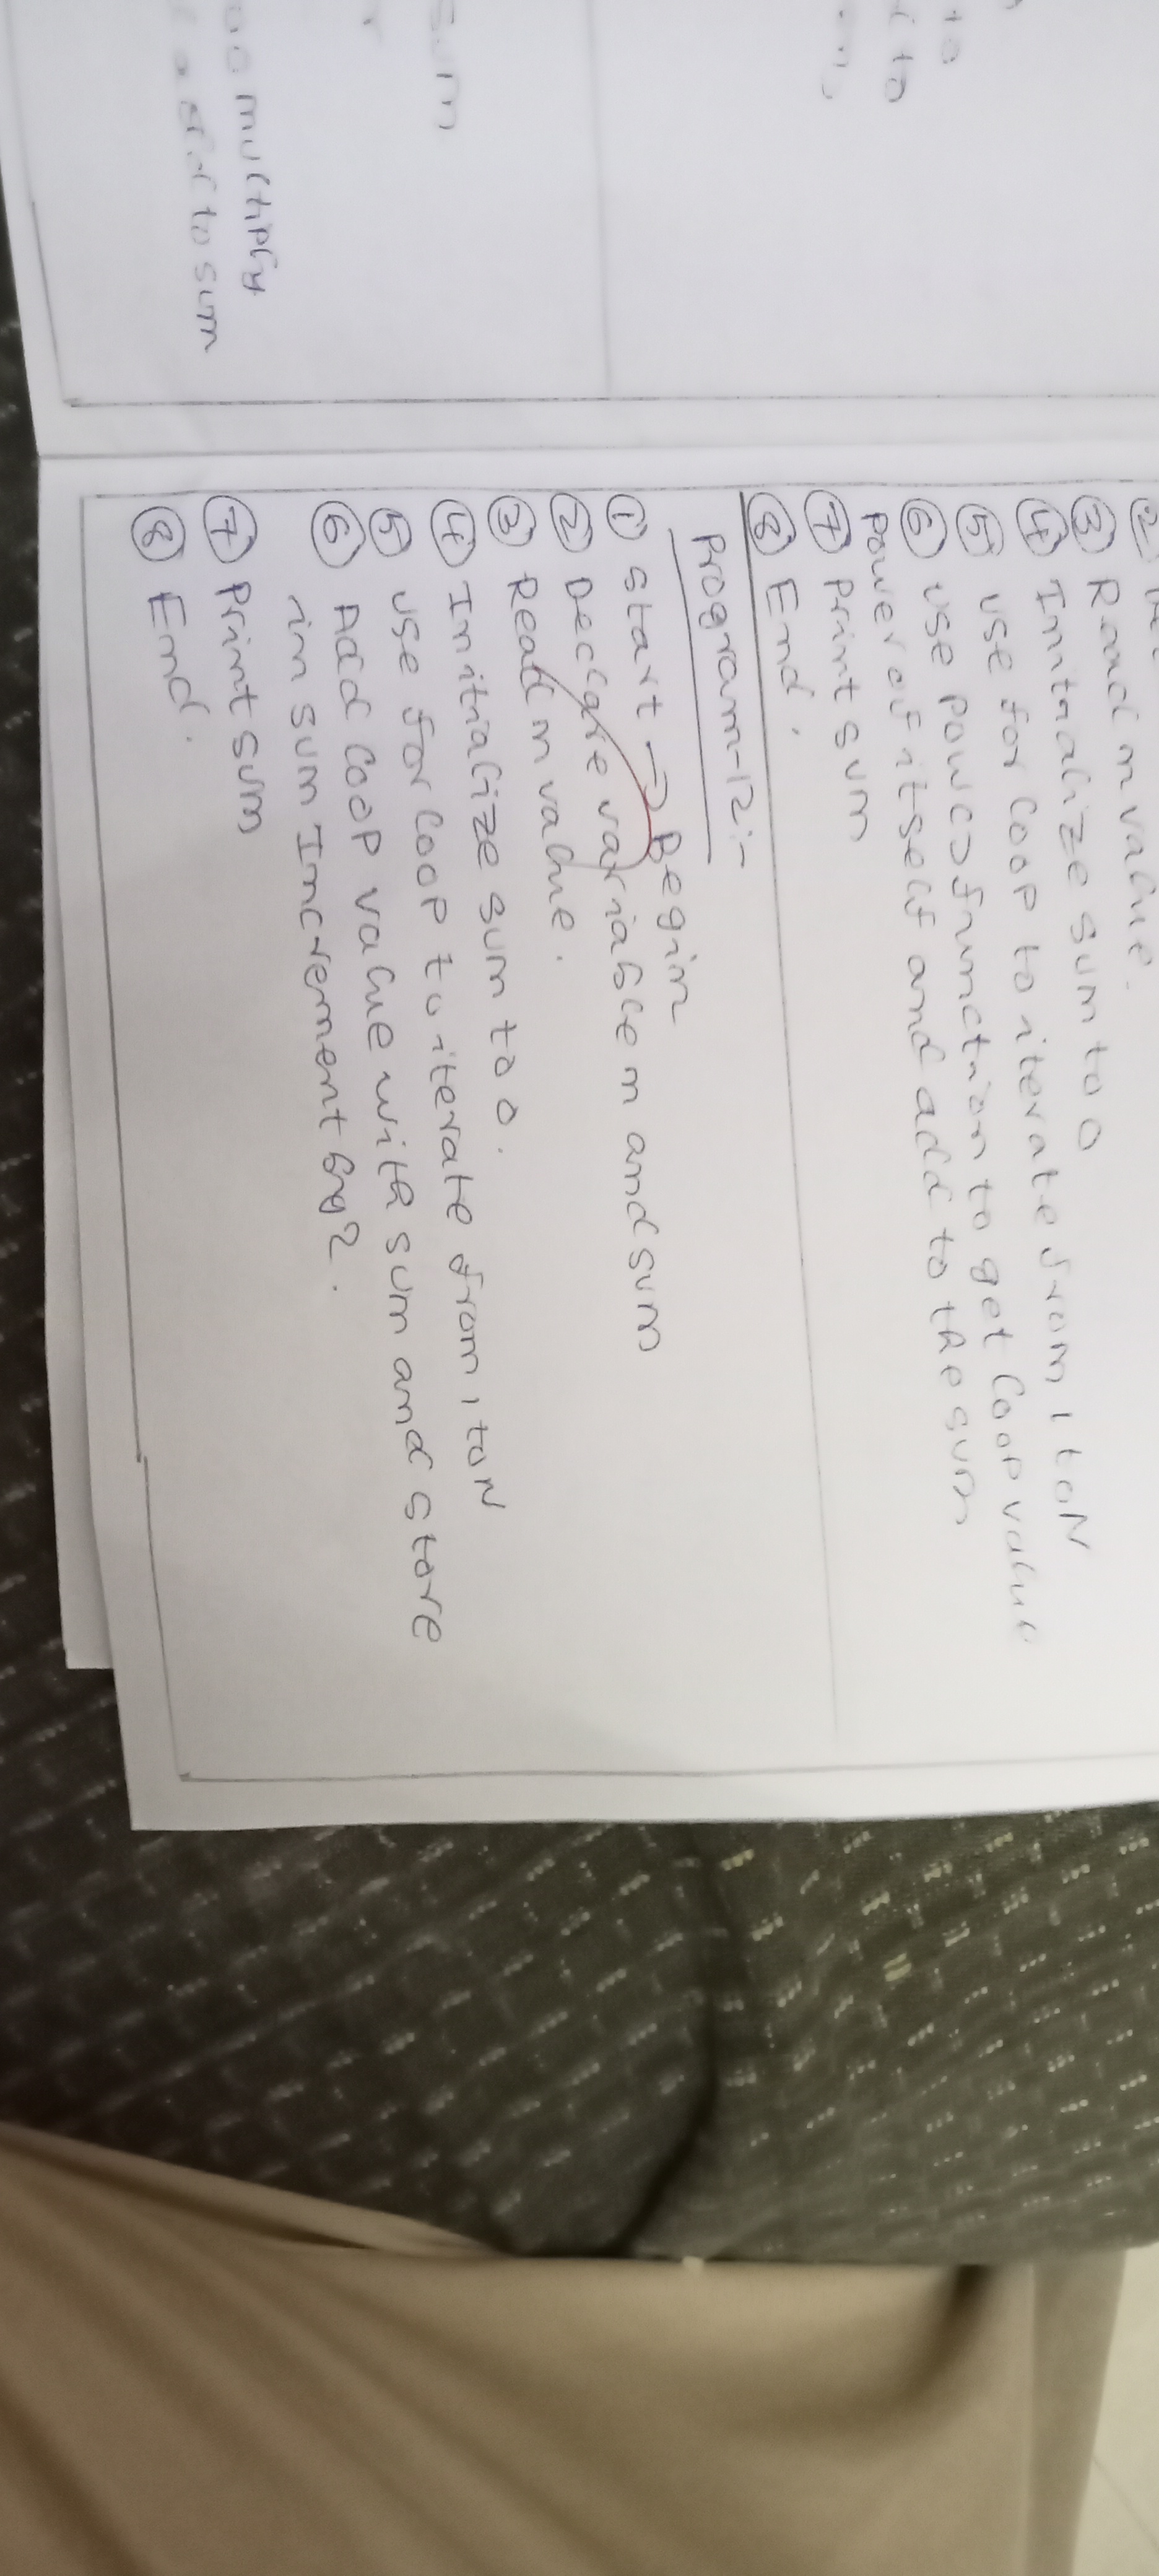 multiply
to sum
sum
to
to
②
③ Read n value.
④ Initialize sum to 0
⑤ use for loop to iterate from 1 to N
⑥ use pow() function to get loop value
power of itself and add to the sum
⑦ print sum
⑧ End.
Program-12:-
① Start → Begin
② Declare variable n and sum
③ Read n value.
④ Initialize sum to 0.
⑤ use for loop to iterate from 1 to N
⑥ Add loop value with sum and store
in sum Increment by 2.
⑦ Print sum
⑧ End.